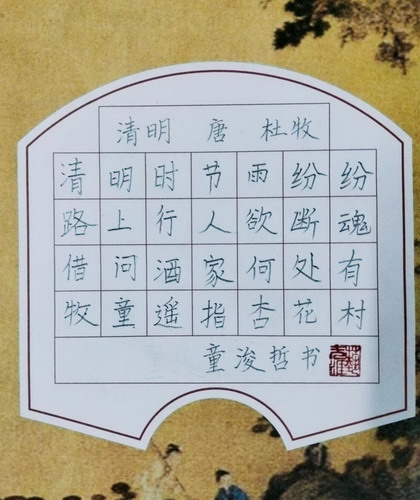 清明 唐 杜牧
清明时节雨纷纷
路上行人欲断魂
借问酒家何处有
牧童遥指杏花村
童浚哲书